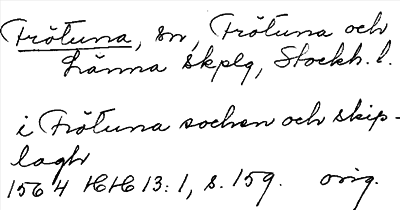 Frötuna, sn, Frötuna och
Länna skplg, Stockh. l.
i Frötuna sochen och skip-
lagh
1564 HH 13: 1, s. 159. orig.